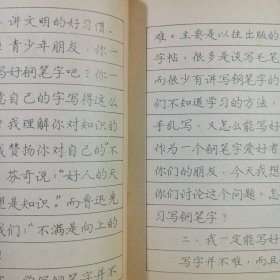 讲文明的好习惯，
青少年朋友，你一
写好钢笔字吧？你一
意自己的字写得这么
？我理解你对知识的
我赞扬你对自己的“不
芬奇说：“好人的天
望是知识”，而鲁迅先
我们：“不满是向上的
！
写钢笔字并不
难。主要是以往出版的
字帖，很多是谈写毛笔
而很少有讲写钢笔字的
们不知道学习的方法，
手乱写，又怎么能写好
你为一个钢笔字爱好者
们的朋友，今天我想
你们讨论这个问题：怎
习写钢笔字？
二、我一定能写好
写字并不难，而且